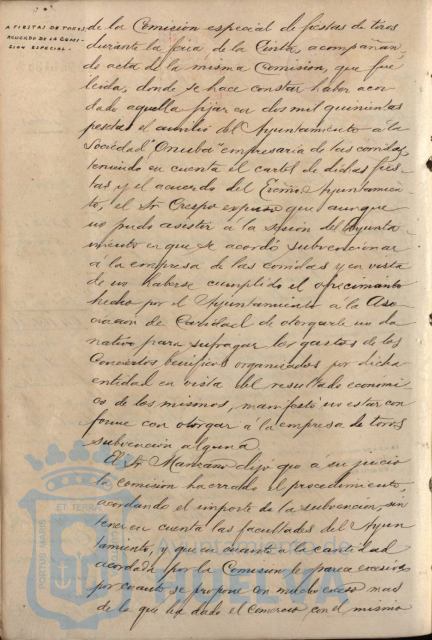 A FIESTAS DE TOROS
ACUERDO DE LA COMI-
SION ESPECIAL.-
de la Comision especial de fiestas de toros
durante la feria de la Cinta, acompañan-
do acta de la misma Comision, que fue
leida, donde se hace constar haber acor
dado aquella fijar en dos mil quinientas
pesetas el auxilio del Ayuntamiento á la
Sociedad "Onuba" empresaria de las corridas,
teniendo en cuenta el cartel de dichas fies-
tas y el acuerdo del Excmo. Ayuntamien-
to, el Sr. Crespo expuso que aunque
no pudo asistir á la sesion del Ayunta
miento en que se acordó subvencionar
á la empresa de las corridas y en vista
de no haberse cumplido el ofrecimiento
hecho por el Ayuntamiento á la Aso-
ciacion de Caridad de otorgarle un do
nativo para sufragar los gastos de los
Conciertos benéficos organizados por dicha
entidad en vista del resultado economi-
co de los mismos, manifestó no estar con
forme con otorgar á la empresa de toros
subvención alguna
El Sr. Mascaros dijo que á su juicio
la comisión ha errado el procedimiento
acordando el importe de la subvencion, sin
tener en cuenta las facultades del Ayun-
tamiento, y que en cuanto a la cantidad
acordada por la Comisión le parece excesiva
por cuanto se propone con mucho exceso mas
de lo que ha dado el Comercio con el mismo
PORTUS MARIS ET TERRAE CUSTODIA
Ayuntamiento de
HUELVA